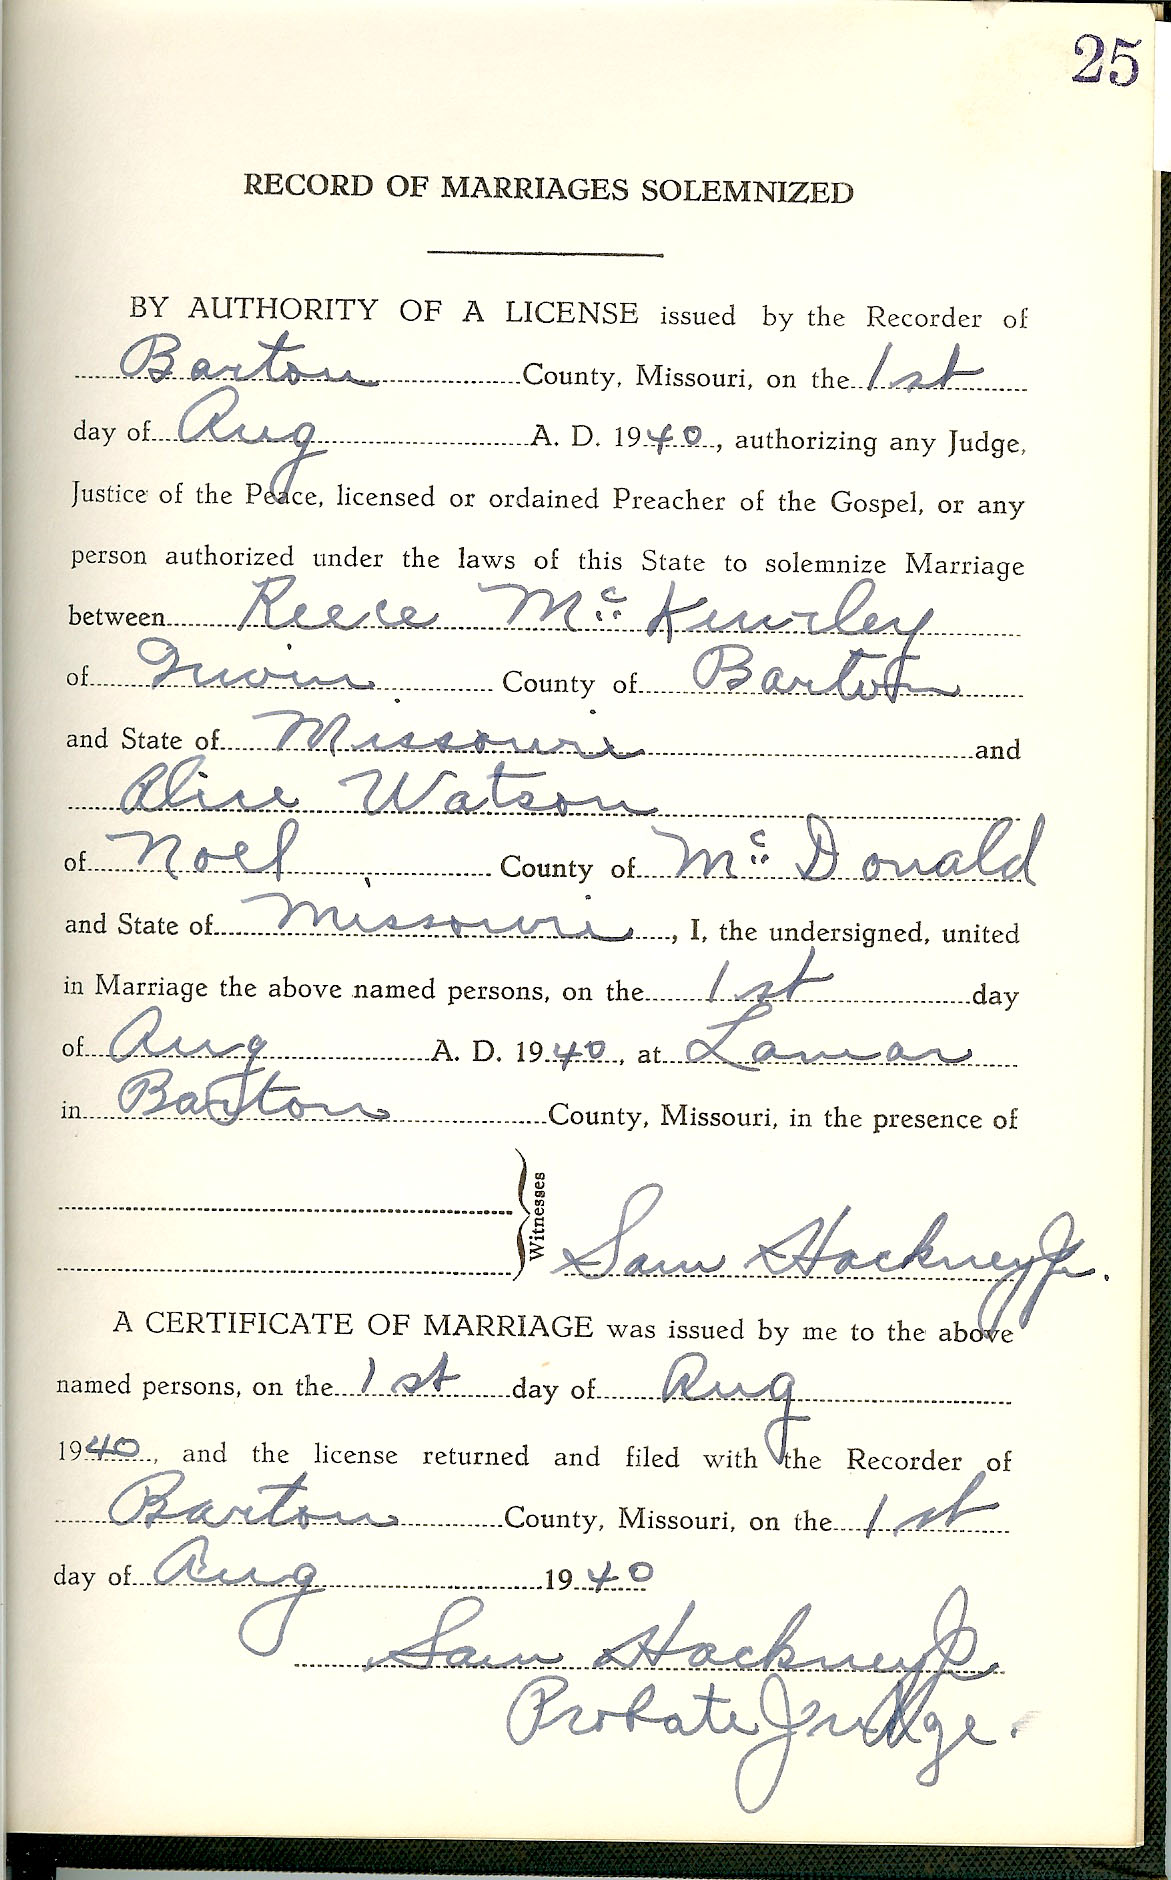 25
RECORD OF MARRIAGES SOLEMNIZED
BY AUTHORITY OF A LICENSE issued by the Recorder of
Barton County, Missouri, on the 1st
day of Aug A. D. 1940, authorizing any Judge,
Justice of the Peace, licensed or ordained Preacher of the Gospel, or any
person authorized under the laws of this State to solemnize Marriage
between Reece Mc Kinley
of Irwin County of Barton
and State of Missouri and
Alice Watson
of Noel County of Mc Donald
and State of Missouri, I, the undersigned, united
in Marriage the above named persons, on the 1st day
of Aug A. D. 1940, at Lamar
in Barton County, Missouri, in the presence of
Witnesses
Sam Hackney Jr.
A CERTIFICATE OF MARRIAGE was issued by me to the above
named persons, on the 1st day of Aug
1940, and the license returned and filed with the Recorder of
Barton County, Missouri, on the 1st
day of Aug 1940
Sam Hackney Jr.
Probate Judge.